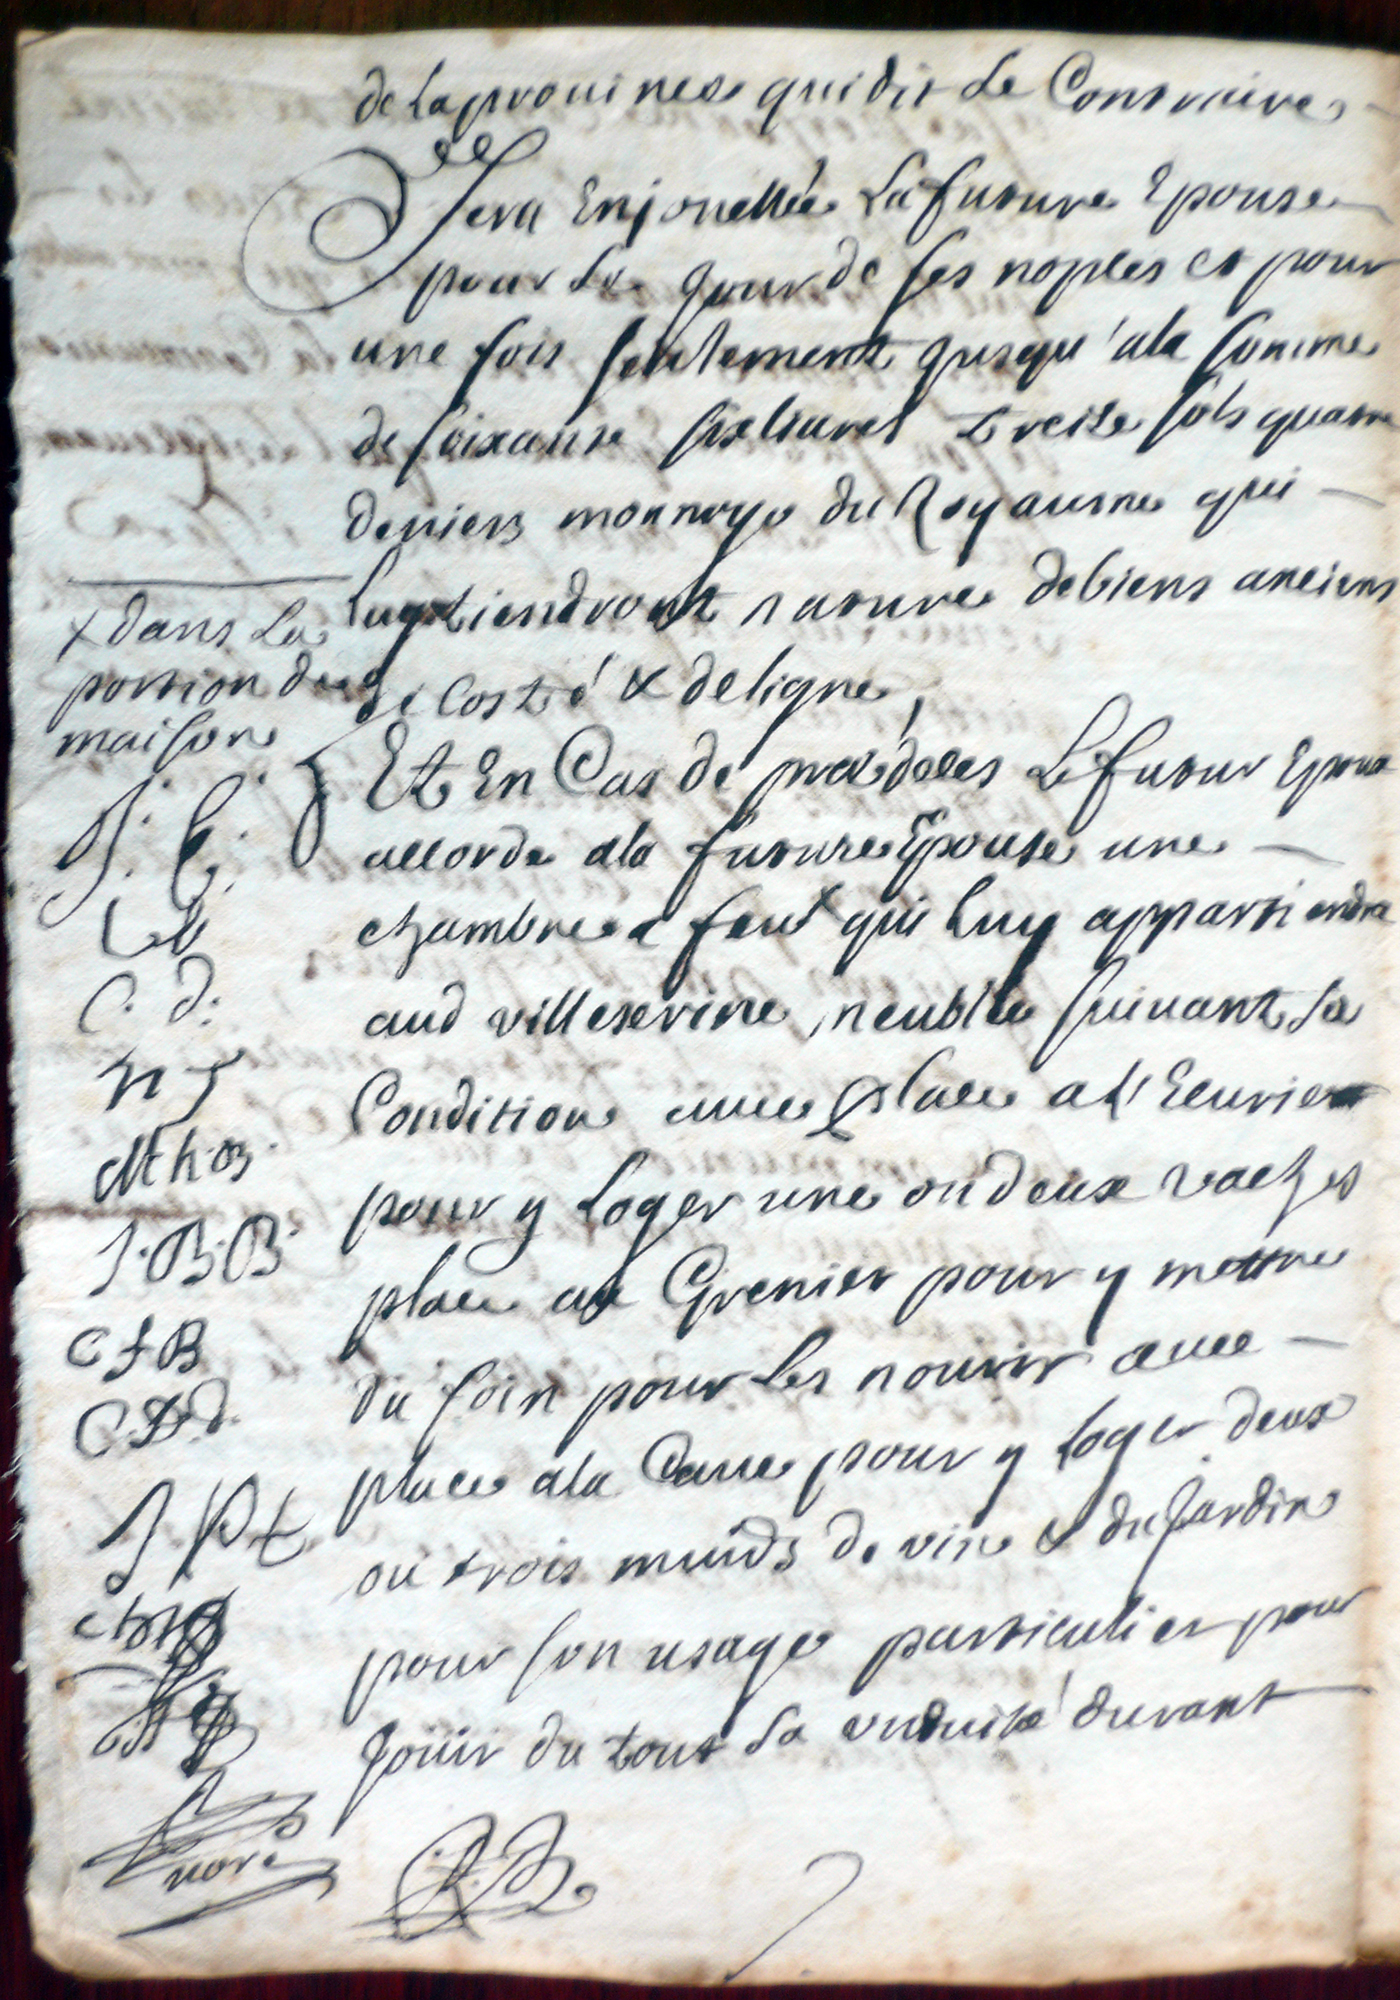 de la prouince qui dit le Contraire,
Sera Enjouellée La future Epouse
pour Le Jour de ses nopces et pour
une fois seulement Jusqu'a la somme
de soixante six liures treize sols quatre
deniers monnoye du Royaume qui
luy tiendront nature de biens anciens
de Costé & de ligne,
Et En Cas de predéces Le futur Epoux
accorde a la future Epouse une
chambre a feu x qui luy appartiendra
aud villesevine, meublée suiuant sa
Condition auec place a l'Ecurie
pour y Loger une ou deux vaches
place au Grenier pour y mettre
du foin pour les nourir auec
place a la Caue pour y loger deux
ou trois muids de vin & du Jardin
pour son usage particulier pour
Joüir du tout sa viduité durant
x dans la
portion de
maison
J. C.
C. d.
N J
M h B.
J. B. B.
C f B
C. D. d.
J P t